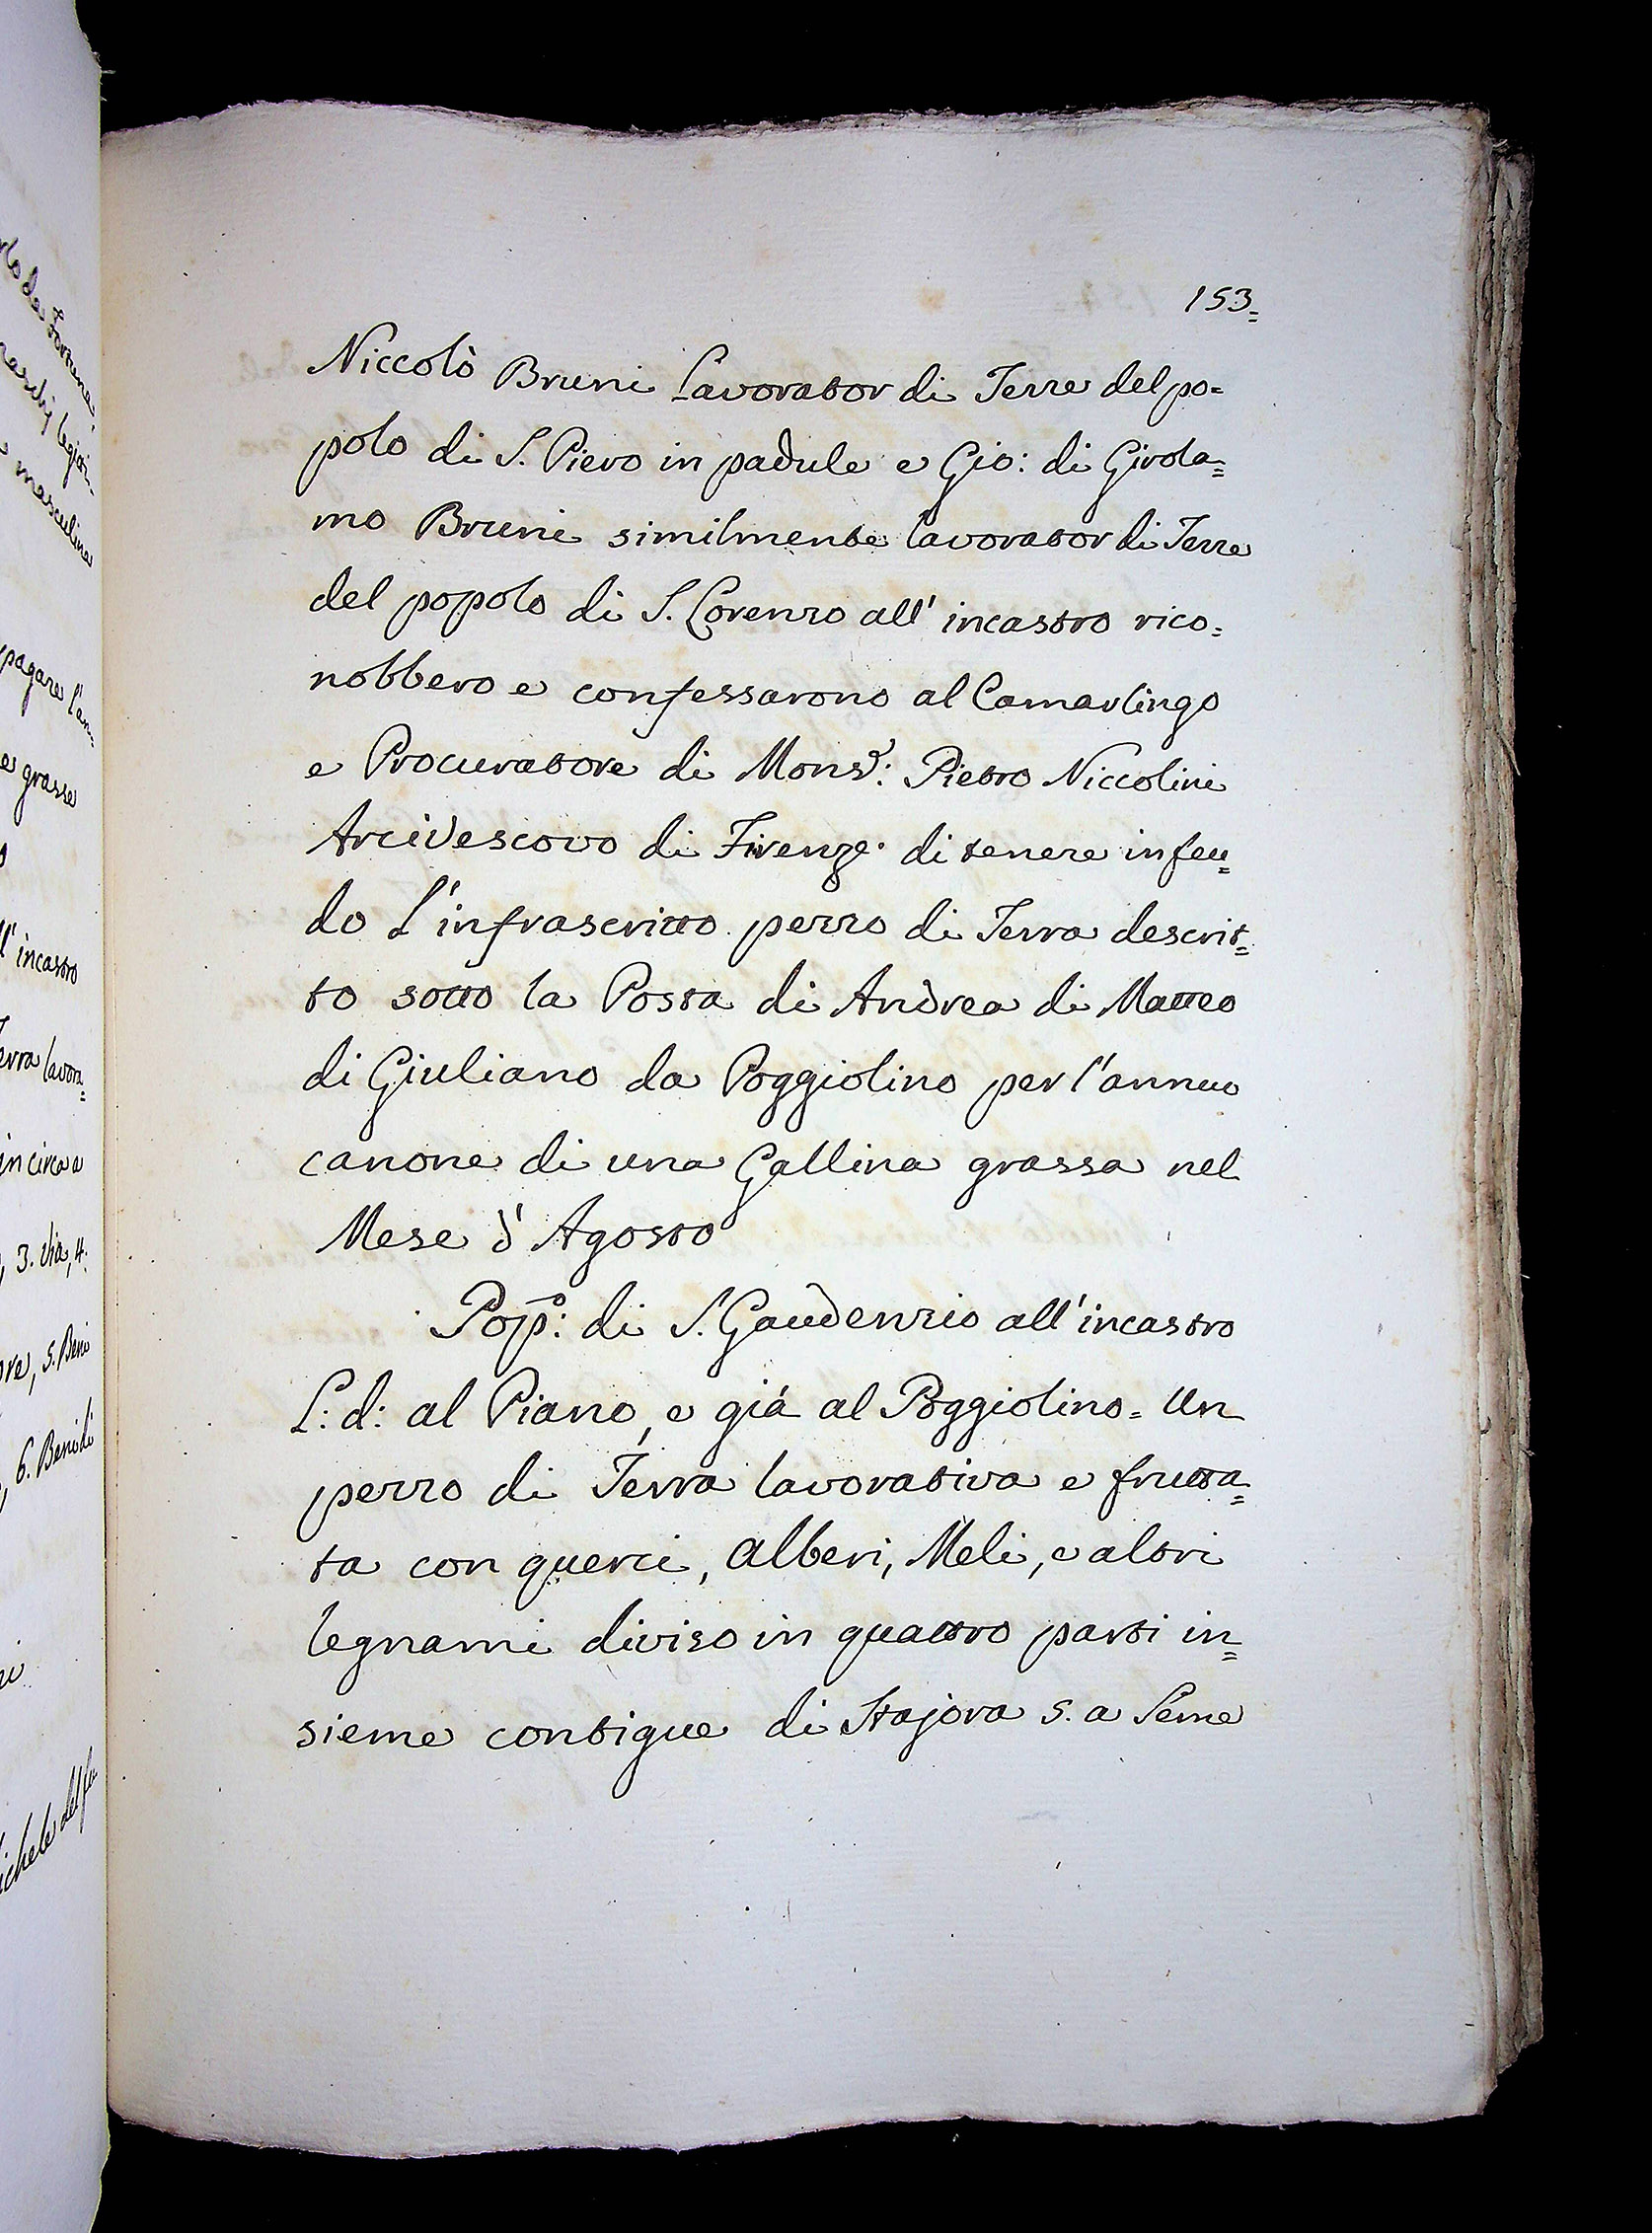 153=
Niccolò Bruni Lavorator di Terre del po=
polo di S. Piero in padule e Gio: di Girola=
mo Bruni similmente lavorator di Terre
del popolo di S. Lorenzo all' incastro rico=
nobbero e confessarono al Camarlingo
e Procuratore di Monsr: Pietro Niccolini
Arcivescovo di Firenze di tenere in feu=
do l'infrascritto pezzo di Terra descrit=
to sotto la Posta di Andrea di Matteo
di Giuliano da Poggiolino per l'annuo
canone di una Gallina grassa nel
Mese d' Agosto
Popo: di S. Gaudenzio all'incastro
L: d: al Piano, e già al Poggiolino= Un
pezzo di Terra lavorativa e frutta=
ta con querci, alberi, Meli, e altri
legnami diviso in quattro parti in=
sieme contigue di Stajora 5. a Seme
pagare l'an
e grasse
l'incastro
Terra lavora=
in circa a
, 3. via, 4:
ore, 5. Beni
, 6. Beni di
ichele del fu